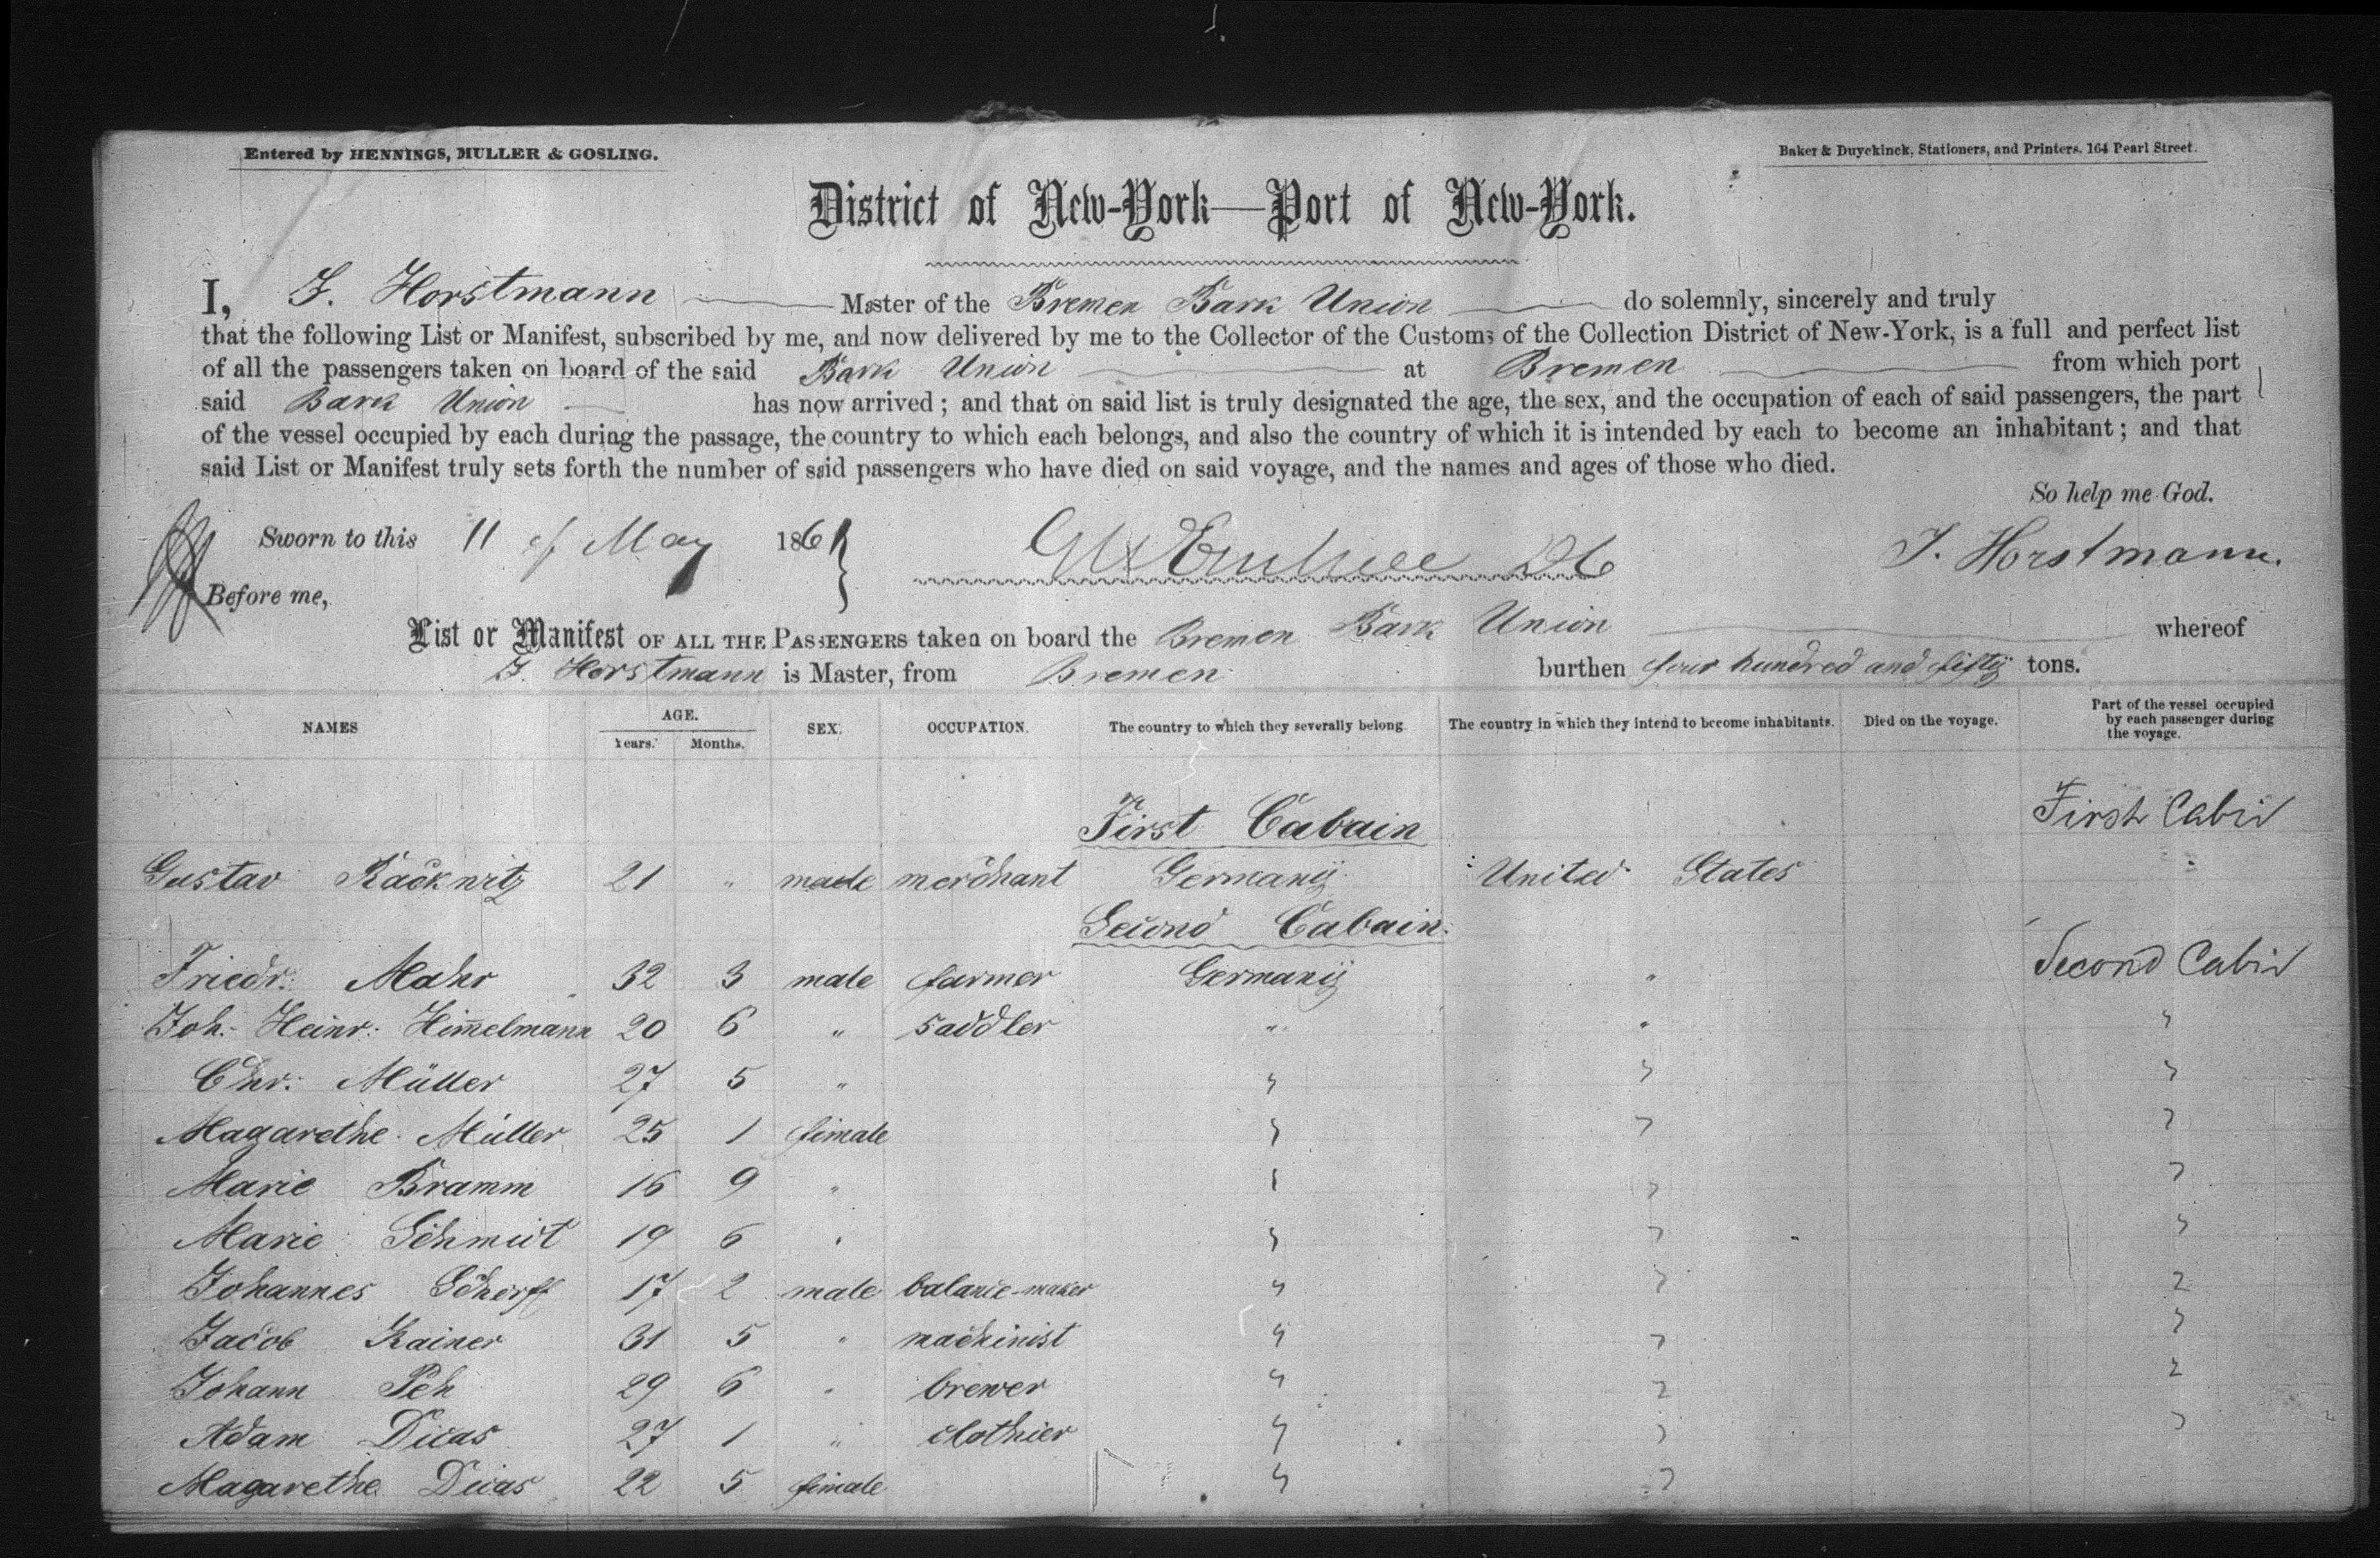 Entered by HENNINGS, MULLER & GOSLING.
Baker & Duyckinck, Stationers, and Printers. 164 Pearl Street.
District of New-York—Port of New-York.
I, J. Horstmann Master of the Bremen Bark Union do solemnly, sincerely and truly
that the following List or Manifest, subscribed by me, and now delivered by me to the Collector of the Customs of the Collection District of New-York, is a full and perfect list
of all the passengers taken on board of the said Bark Union at Bremen from which port
said Bark Union has now arrived; and that on said list is truly designated the age, the sex, and the occupation of each of said passengers, the part
of the vessel occupied by each during the passage, the country to which each belongs, and also the country of which it is intended by each to become an inhabitant; and that
said List or Manifest truly sets forth the number of said passengers who have died on said voyage, and the names and ages of those who died.
So help me God.
Sworn to this 11 of May 1861
J. Horstmann.
Before me,
List or Manifest OF ALL THE PASSENGERS taken on board the Bremen Bark Union whereof
J. Horstmann is Master, from Bremen burthen four hundred and fifty tons.
NAMES AGE. SEX. OCCUPATION. The country to which they severally belong. The country in which they intend to become inhabitants. Died on the voyage. Part of the vessel occupied by each passenger during the voyage.
Years. Months.
First Cabain First Cabin
Gustav Rackwitz 21 " male merchant Germany United States
Second Cabain.
Friedr. Mahr 32 3 male farmer Germany " Second Cabin
Joh. Heinr. Him̄elmann 20 6 " saddler " " "
Chr. Müller 27 5 " " " "
Magarethe Müller 25 1 fimale " " "
Marie Bramm 16 9 " " " "
Marie Schmidt 19 6 " " " "
Johannes Schorff 17 2 male balance-maker " " "
Jacob Kainer 31 5 " machinist " " "
Johann Peh 29 6 " brewer " " "
Adam Dicas 27 1 " clothier " " "
Magarethe Dicas 22 5 fimale " "